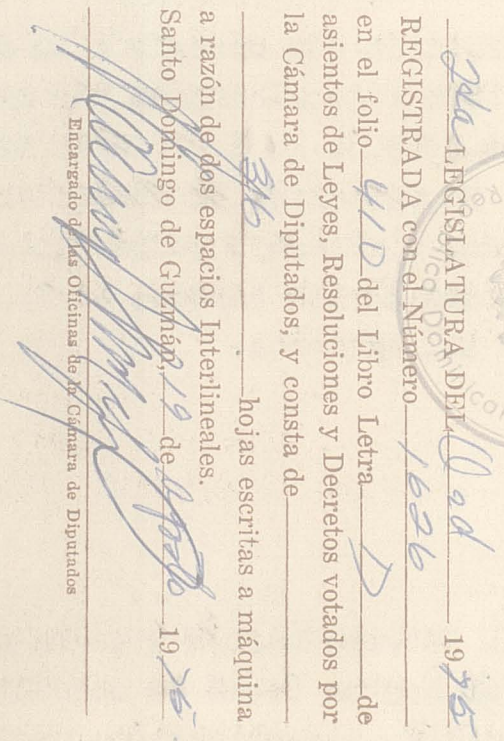 2da LEGISLATURA DEL Ord 1975
REGISTRADA con el Número 1626
en el folio 410 del Libro Letra D de
asientos de Leyes, Resoluciones y Decretos votados por
la Cámara de Diputados, y consta de
316 hojas escritas a máquina
a razón de dos espacios Interlineales.
Santo Domingo de Guzmán, 19 de Agosto 1975
Encargado de las Oficinas de la Cámara de Diputados